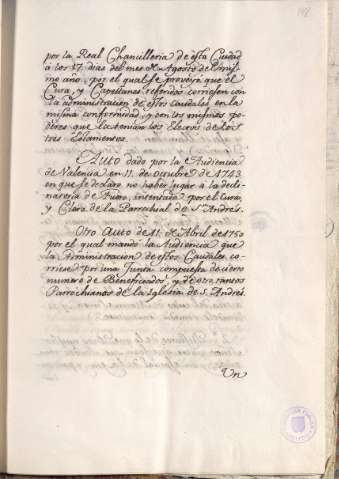 por la Real Chancilleria de esta Ciudad
a los 17 dias del mes de Agosto del mis-
mo año, por el qual se proveyó que el
Cura, y Capellanes referidos corriesen con
la administracion de estos caudales en la
misma conformidad, y con los mismos po-
deres que la tenian los Electos de los
tres Estamentos.
Auto dado por la Audiencia
de Valencia en 11. de Octubre de 1743
en que se declaro no haber lugar a la decli-
natoria de Fuero, intentada por el Cura,
y Clero de la Parrochial de Sn Andrés.
Otro Auto de 11 de Abril de 1750
por el qual mandó la Audiencia que
la Administracion de estos Caudales co-
rriese por una Junta compuesta de cierto
numero de Beneficiados, y de otros tantos
Parrochianos de la Iglesia de S. Andrés.
Un